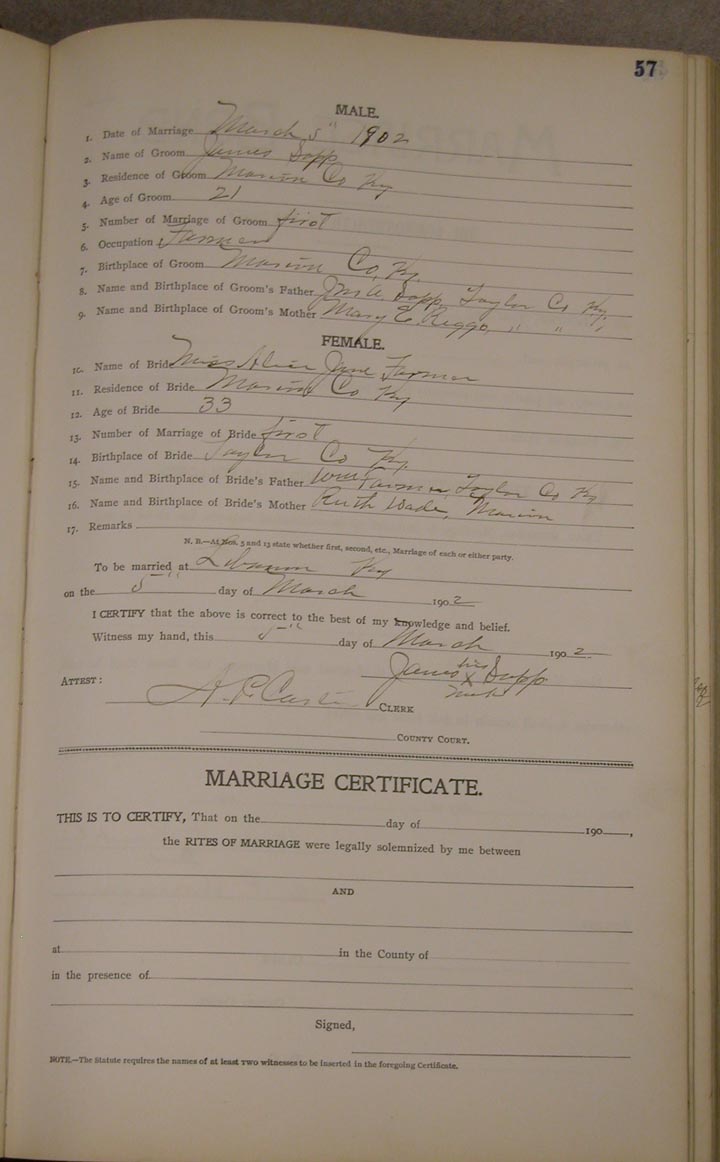 57
MALE.
1. Date of Marriage March 5" 1902
2. Name of Groom James Sapp
3. Residence of Groom Marion Co Ky
4. Age of Groom 21
5. Number of Marriage of Groom first
6. Occupation Farmer
7. Birthplace of Groom Marion Co, Ky.
8. Name and Birthplace of Groom's Father Sapp, Taylor Co Ky,
9. Name and Birthplace of Groom's Mother Mary E. Riggs, " " "
FEMALE.
10. Name of Bride Miss Alice Jane Farmer
11. Residence of Bride Marion Co Ky
12. Age of Bride 33
13. Number of Marriage of Bride first
14. Birthplace of Bride Taylor Co Ky
15. Name and Birthplace of Bride's Father Wm Farmer, Taylor Co Ky
16. Name and Birthplace of Bride's Mother Ruth Wade, Marion
17. Remarks
N. B.—At Nos. 5 and 13 state whether first, second, etc., Marriage of each or either party.
To be married at Lebanon Ky
on the 5" day of March 1902
I CERTIFY that the above is correct to the best of my knowledge and belief.
Witness my hand, this 5" day of March 1902
James his X mark Sapp
ATTEST: CLERK
COUNTY COURT.
MARRIAGE CERTIFICATE.
THIS IS TO CERTIFY, That on the day of 190 ,
the RITES OF MARRIAGE were legally solemnized by me between
AND
at in the County of
in the presence of
Signed,
NOTE.—The Statute requires the names of at least two witnesses to be inserted in the foregoing Certificate.